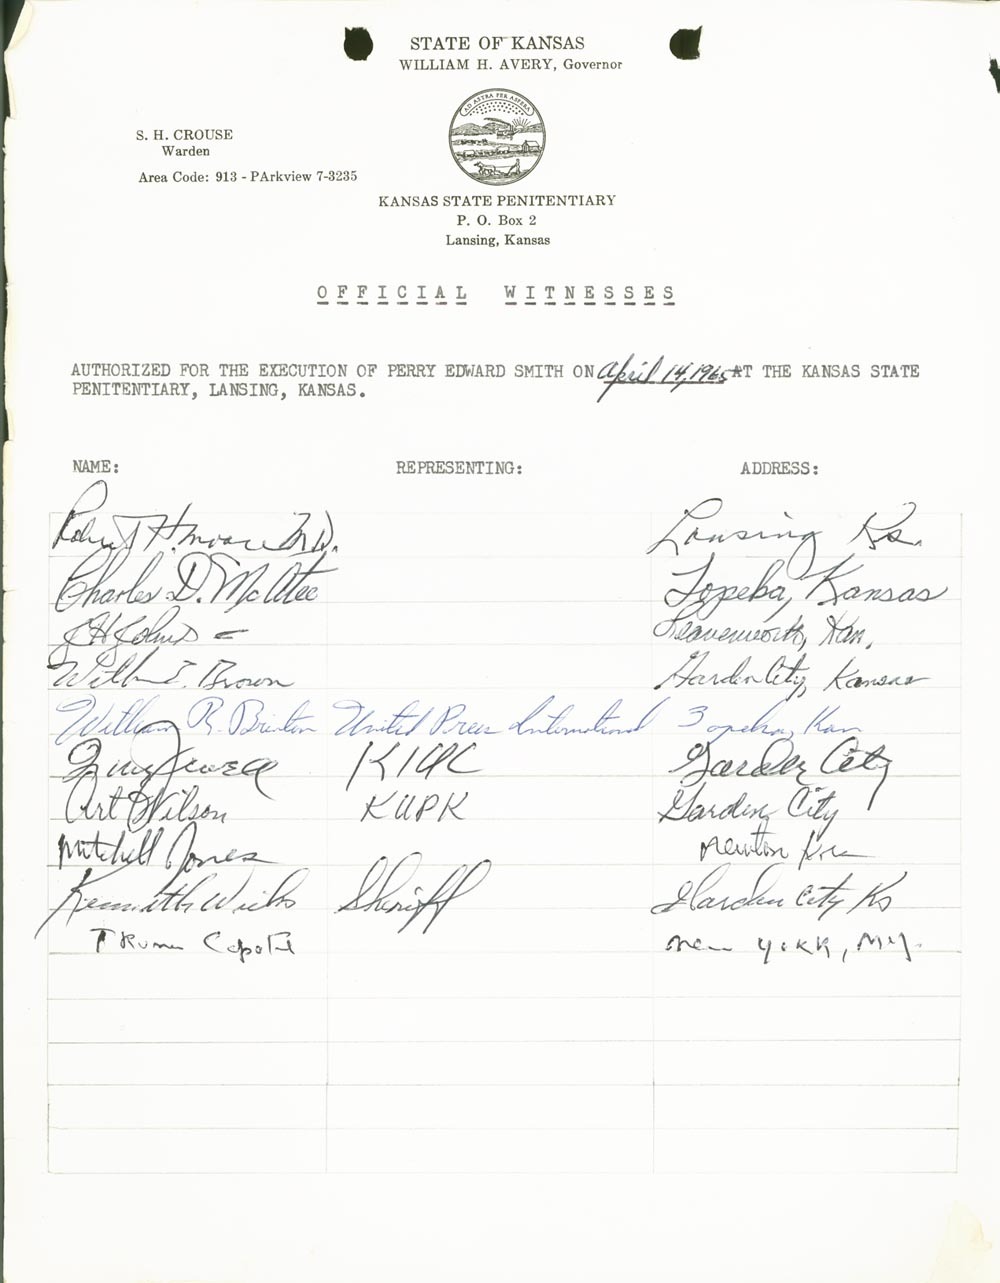 STATE OF KANSAS
WILLIAM H. AVERY, Governor
AD ASTRA PER ASPERA
S. H. CROUSE
Warden
Area Code: 913 - PArkview 7-3235
KANSAS STATE PENITENTIARY
P. O. Box 2
Lansing, Kansas
OFFICIAL WITNESSES
AUTHORIZED FOR THE EXECUTION OF PERRY EDWARD SMITH ON April 14, 1965 AT THE KANSAS STATE
PENITENTIARY, LANSING, KANSAS.
NAME: REPRESENTING: ADDRESS:
Robert H. Moore M.D. Lansing Ks.
Charles D. McAtee Topeka, Kansas
Leavenworth, Kan.
Brown Garden City, Kansas
William R. Brinton United Press International Topeka, Kan
Garden City
Art Wilson KUPK Garden City
Mitchell Jones Newton Kan
Kenneth Sheriff Garden City Ks
Truman Capote New York, N.Y.